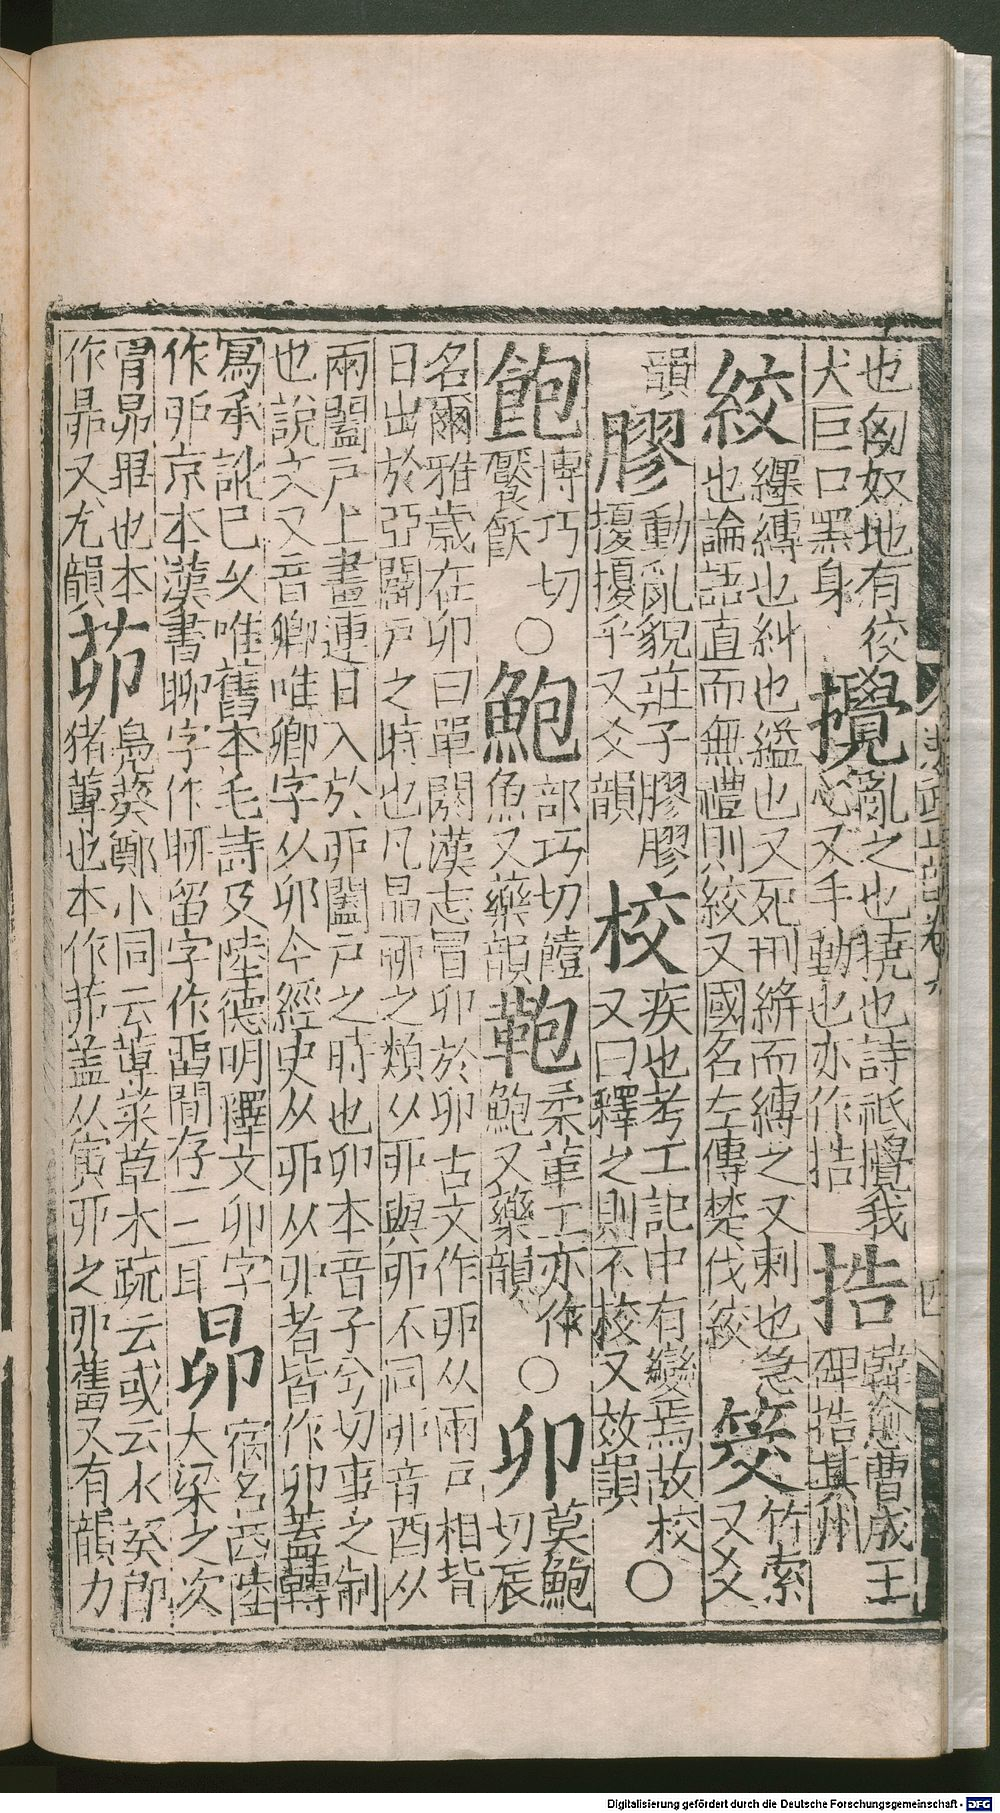 也匈奴地有佼
犬巨口黑身
攪
亂之也撓也詩祇攪我
心又手動也亦作捁
捁
韓愈曹成王
碑捁其州
絞
纆縳也糾也縊也又死刑絣而縳之又刺也急
也論語直而無禮則絞又國名左傳楚伐絞
筊
竹索
又爻
韻
膠
動亂貌莊子膠膠
擾擾乎又爻韻
校
疾也考工記中有變焉故校
又曰釋之則不校又效韻
○
飽
博巧切
饜飫
○
鮑
部巧切饐
魚又藥韻
鞄
柔革工亦作
鮑又藥韻
○
卯
莫鮑
切辰
名爾雅歲在卯曰單閼漢志冒卯於卯古文作戼从兩戶相背
日出於亞闢戶之時也凡昴聊之類从戼與丣不同丣音酉从
兩闔戶上畫連日入於丣闔戶之時也卯本音子兮切事之制
也說文又音卿唯卿字从卯今經史从丣从戼者皆作卯蓋轉
寫承訛已久唯舊本毛詩及陸德明釋文卯字
作戼京本漢書聊字作聊留字作畱間存一二耳
昴
宿名西陸
大梁之次
冐昴畢也本
作昴又尤韻
茆
鳧葵鄭小同云蓴菜草木疏云或云水葵即
猪蓴也本作茆蓋从寅戼之戼舊又有韻力
Digitalisierung gefördert durch die Deutsche Forschungsgemeinschaft - DFG